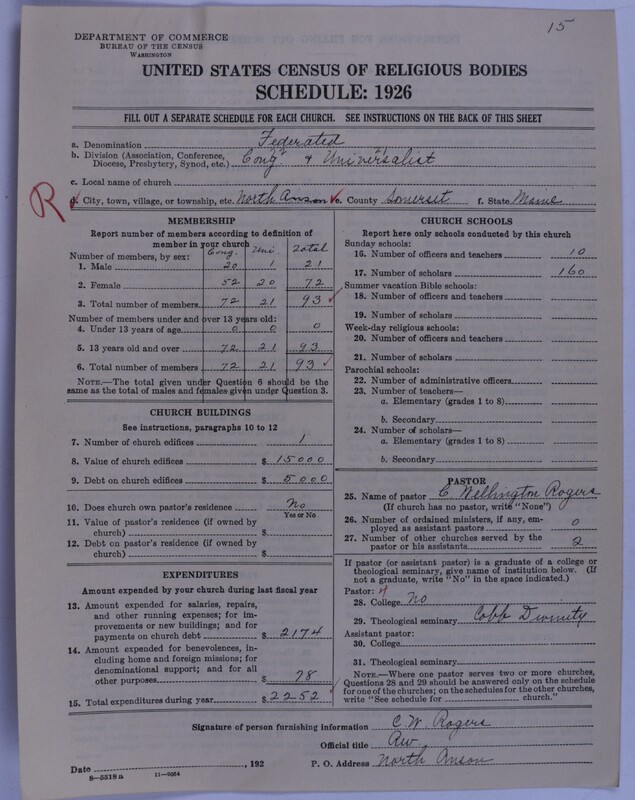 15
DEPARTMENT OF COMMERCE
BUREAU OF THE CENSUS
WASHINGTON
UNITED STATES CENSUS OF RELIGIOUS BODIES
SCHEDULE: 1926
FILL OUT A SEPARATE SCHEDULE FOR EACH CHURCH. SEE INSTRUCTIONS ON THE BACK OF THIS SHEET
a. Denomination Federated
b. Division (Association, Conference, Diocese, Presbytery, Synod, etc.) Cong'l & Universalist
c. Local name of church
R
d. City, town, village, or township, etc. North Anson e. County Somerset f. State Maine
MEMBERSHIP
Report number of members according to definition of member in your church
Cong. Uni Total
Number of members, by sex:
1. Male 20 1 21
2. Female 52 20 72
3. Total number of members 72 21 93
Number of members under and over 13 years old:
4. Under 13 years of age 0 0 0
5. 13 years old and over 72 21 93
6. Total number of members 72 21 93
NOTE.—The total given under Question 6 should be the same as the total of males and females given under Question 3.
CHURCH BUILDINGS
See instructions, paragraphs 10 to 12
7. Number of church edifices 1
8. Value of church edifices $ 15000
9. Debt on church edifices $ 5000
10. Does church own pastor's residence No
Yes or No
11. Value of pastor's residence (if owned by church) $
12. Debt on pastor's residence (if owned by church) $
EXPENDITURES
Amount expended by your church during last fiscal year
13. Amount expended for salaries, repairs, and other running expenses; for improvements or new buildings; and for payments on church debt $ 2174
14. Amount expended for benevolences, including home and foreign missions; for denominational support; and for all other purposes $ 78
15. Total expenditures during year $ 2252
CHURCH SCHOOLS
Report here only schools conducted by this church
Sunday schools:
16. Number of officers and teachers 10
17. Number of scholars 160
Summer vacation Bible schools:
18. Number of officers and teachers
19. Number of scholars
Week-day religious schools:
20. Number of officers and teachers
21. Number of scholars
Parochial schools:
22. Number of administrative officers
23. Number of teachers—
a. Elementary (grades 1 to 8)
b. Secondary
24. Number of scholars—
a. Elementary (grades 1 to 8)
b. Secondary
PASTOR
25. Name of pastor C. Wellington Rogers
(If church has no pastor, write "None")
26. Number of ordained ministers, if any, employed as assistant pastors 0
27. Number of other churches served by the pastor or his assistants 2
If pastor (or assistant pastor) is a graduate of a college or theological seminary, give name of institution below. (If not a graduate, write "No" in the space indicated.)
Pastor:
28. College No
29. Theological seminary Cobb Divinity
Assistant pastor:
30. College
31. Theological seminary
NOTE.—Where one pastor serves two or more churches, Questions 28 and 29 should be answered only on the schedule for one of the churches; on the schedules for the other churches, write "See schedule for church."
Signature of person furnishing information C. W. Rogers
Official title Rev
Date , 192 P. O. Address North Anson
8—5518 a 11—9564